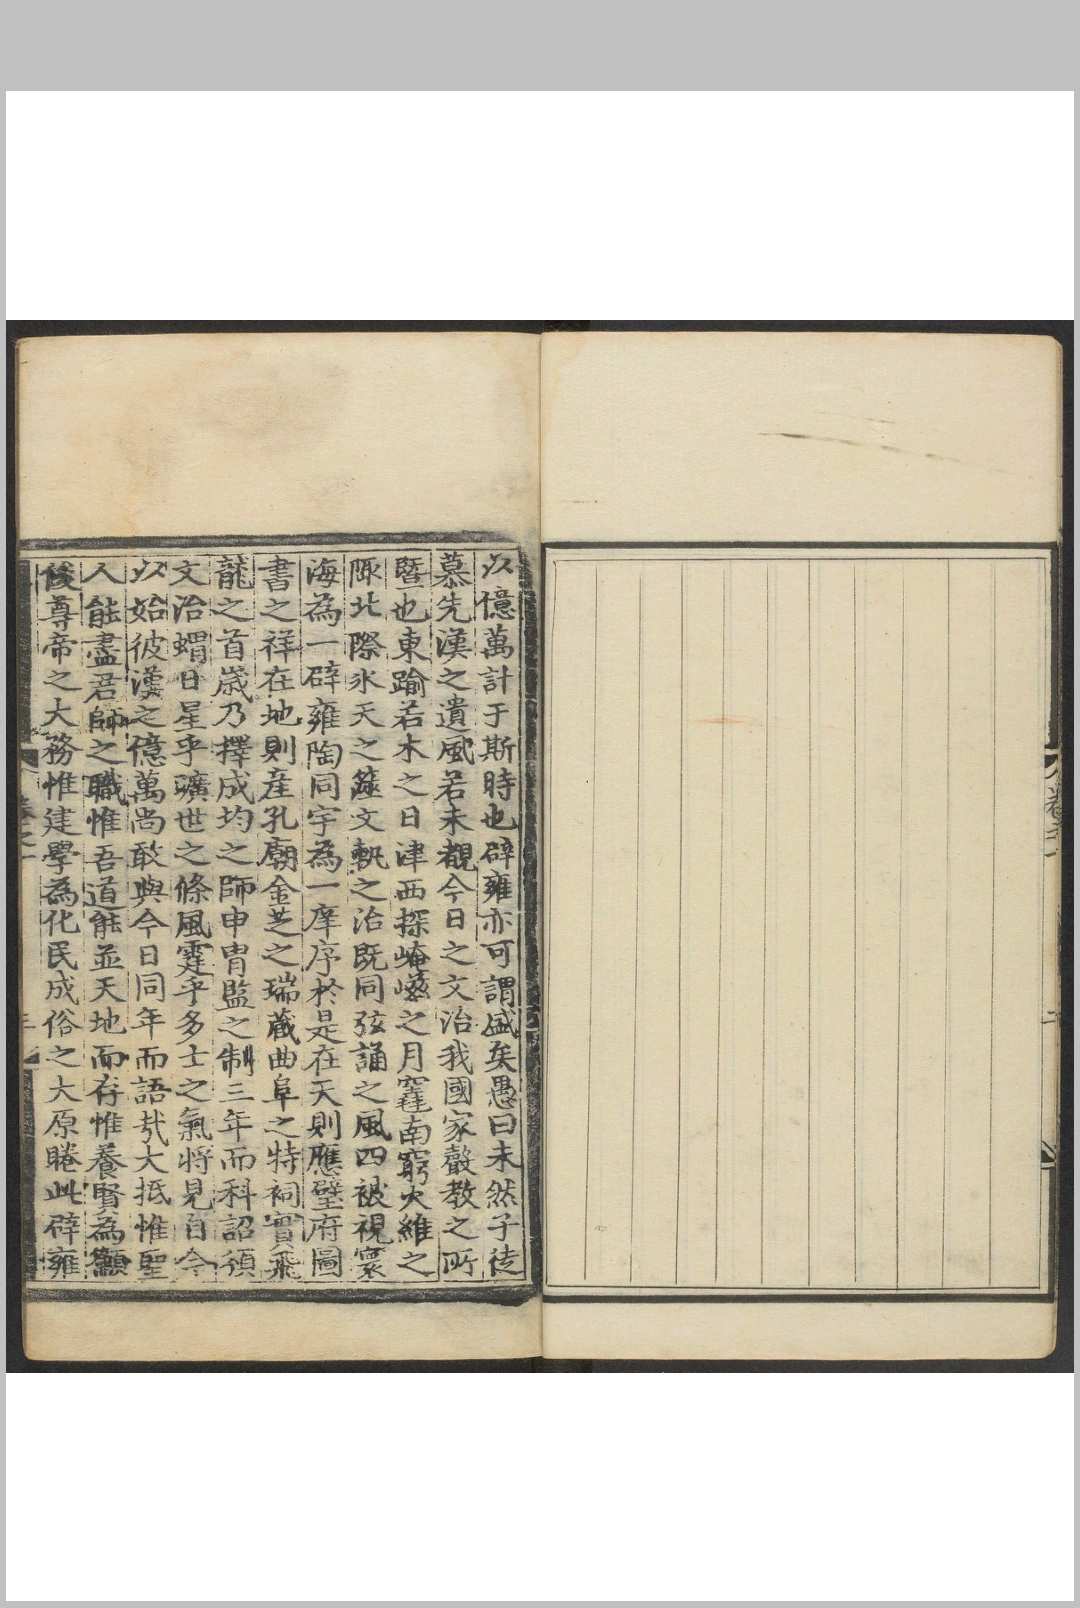 卷之一
以億萬計于斯時也辟雍亦可謂盛矣愚曰未然子徒
慕先漢之遺風若未覩今日之文治我國家聲教之所
曁也東踰若木之日津西探崦嵫之月窟南窮火維之
陬北際氷天之 文軌之治既同弦誦之風四被視寰
海為一辟雍陶同宇為一庠序於是在天則應壁府圖
書之祥在地則産孔廟金芝之瑞蔵曲阜之特祠實飛
龍之首歲乃擇成均之師申胄監之制三年而科詔頒
文治蝟日星乎曠世之條風霆乎多士之氣將見自今
以始彼漢之億萬尚敢與今日同年而語哉大抵惟聖
人能盡君師之職惟吾道能並天地而存惟養賢為籲
俊尊帝之大務惟建學為化民成俗之大原睠此辟雍
卷之一